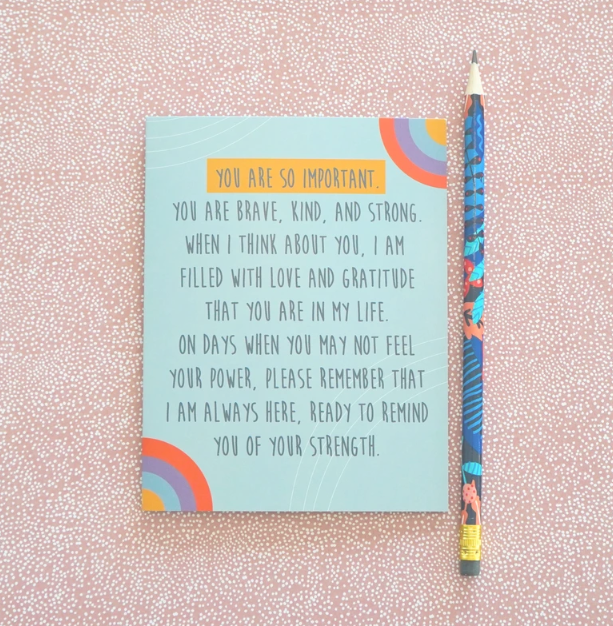 YOU ARE SO IMPORTANT.
YOU ARE BRAVE, KIND, AND STRONG.
WHEN I THINK ABOUT YOU, I AM
FILLED WITH LOVE AND GRATITUDE
THAT YOU ARE IN MY LIFE.
ON DAYS WHEN YOU MAY NOT FEEL
YOUR POWER, PLEASE REMEMBER THAT
I AM ALWAYS HERE, READY TO REMIND
YOU OF YOUR STRENGTH.